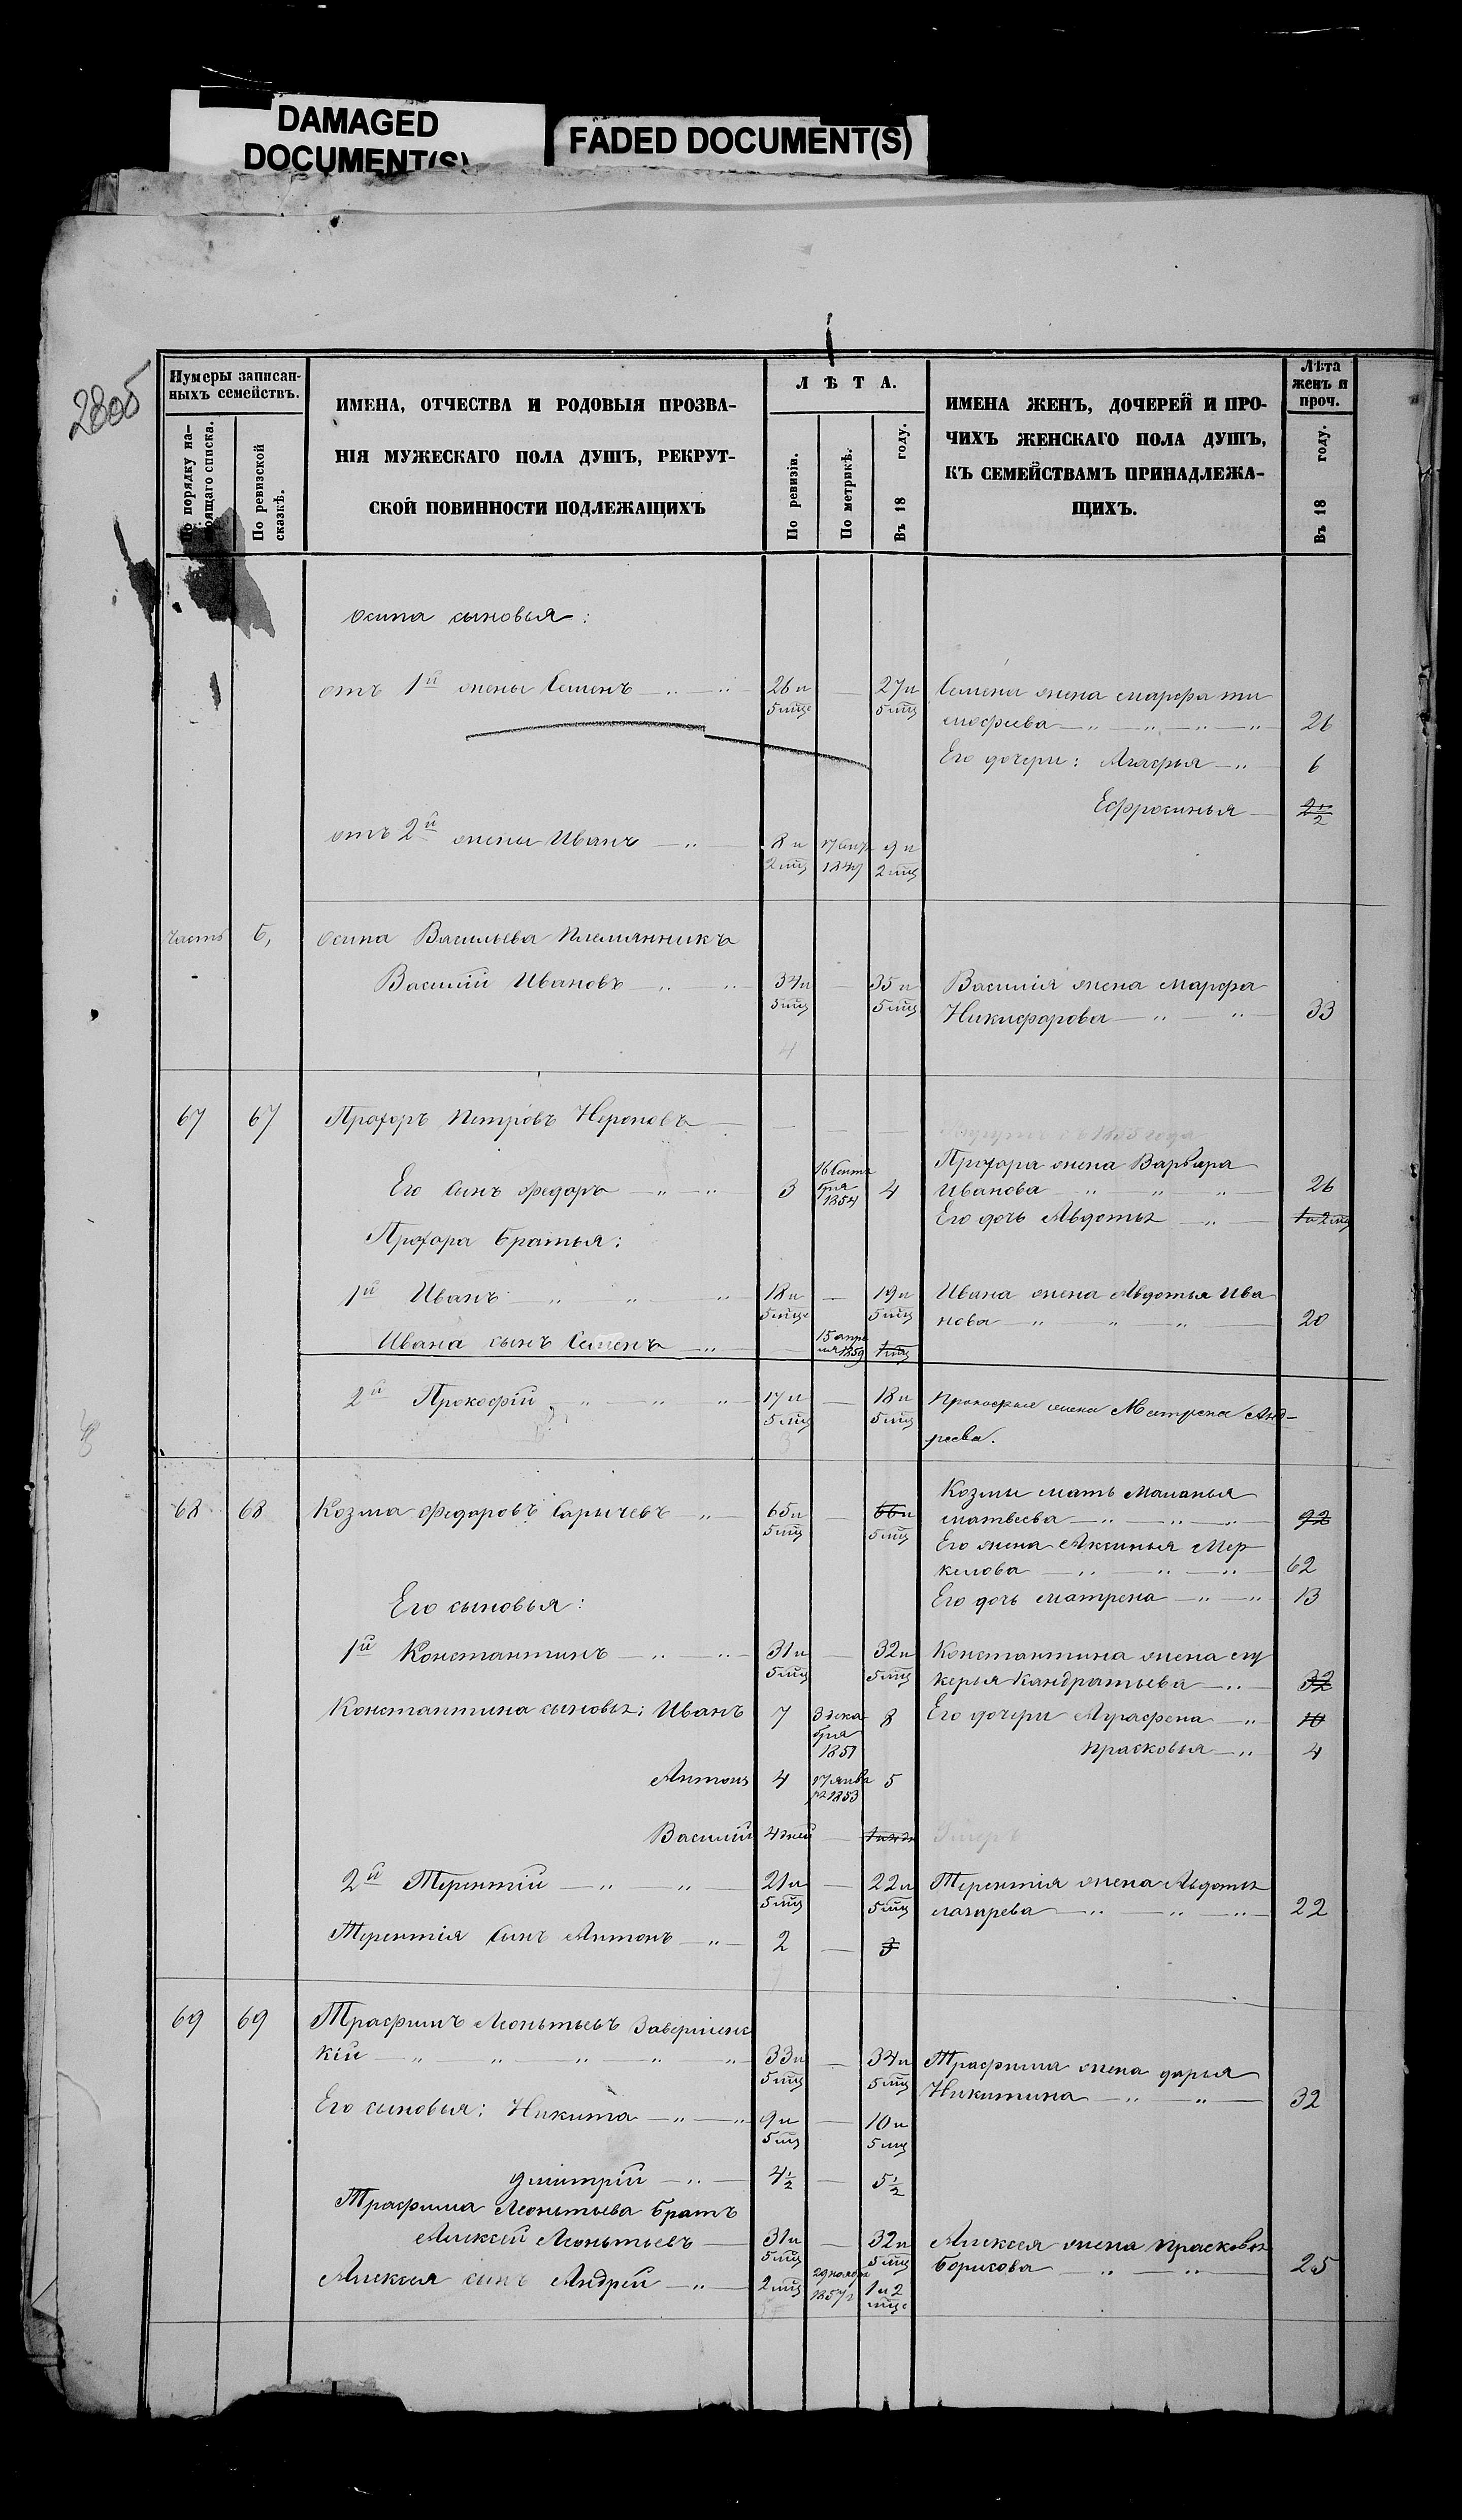 DAMAGED
DOCUMENT(S)
FADED DOCUMENT(S)
2805
Нумеры записан-
ныхъ семействъ.
По порядку на-
стоящаго списка.
По ревизской
сказкѣ.
ИМЕНА, ОТЧЕСТВА И РОДОВЫЯ ПРОЗВА-
НІЯ МУЖЕСКАГО ПОЛА ДУШЪ, РЕКРУТ-
СКОЙ ПОВИННОСТИ ПОДЛЕЖАЩИХЪ
ЛѢТА.
По ревизіи.
По метрикѣ.
Въ 18 году.
ИМЕНА ЖЕНЪ, ДОЧЕРЕЙ И ПРО-
ЧИХЪ ЖЕНСКАГО ПОЛА ДУШЪ,
КЪ СЕМЕЙСТВАМЪ ПРИНАДЛЕЖА-
ЩИХЪ.
Лѣта
женъ и
проч.
Въ 18 году.
Осипа сыновья:
отъ 1й жены Семенъ — 26 и 5 мце — 27 и 5 мц Семена жена Марфа Ти
мофеева 26
Его дочери: Агафья 6
Ефросинья 2 1/2
отъ 2й жены Иванъ 8 и 2 мц 1849 9 и 2 мц
часть 6, Осипа Васильева племянникъ
Василій Ивановъ 34 и 5 мц — 35 и 5 мц Василія жена Марфа
Никифорова 33
4
67 67 Прохоръ Петровъ — 1855 года
Его сынъ Федоръ 3 16 Сентя
бря
1854 4 Прохора жена Варвара
Иванова 26
Его дочь Авдотья 1 и 2 мц
Прохора братья:
1й Иванъ 18 и 5 мце — 19 и 5 мц Ивана жена Авдотья Ива
нова 20
Ивана сынъ Семенъ — 15 апре
ля 1859 1 мц
2й Прокофій 17 и 5 мц — 18 и 5 мц Прокофья жена Матрена Анд-
реева.
68 68 Козма Федоровъ Сарычевъ 65 и 5 мц — 66 и 5 мц Козмы мать Маланья
Матвеева 92
Его жена Аксинья Мер
кулова 62
Его дочь Матрена 13
Его сыновья:
1й Константинъ 31 и 5 мц — 32 и 5 мц Константина жена Лу
керья Кандратьева 32
Константина сыновья: Иванъ 7 3 дека
бря
1851 8 Его дочери Аграфена 10
Прасковья 4
Антонъ 4 17 Янва
ря 1853 5
Василій 4 дней — Умеръ
2й Терентій 21 и 5 мц — 22 и 5 мц Терентія жена Авдотья
Лазарева 22
Терентія сынъ Антонъ 2 — 3
69 69 Трафимъ Леонтьевъ Завершинс
кій 33 и 5 мц — 34 и 5 мц Трафима жена Дарья
Никитина 32
Его сыновья: Никита 9 и 5 мц — 10 и 5 мц
Дмитрій 4 1/2 — 5 1/2
Трафима Леонтьева братъ
Алексей Леонтьевъ 31 и 5 мц — 32 и 5 мц Алексея жена Прасковья
Борисова 25
Алексея сынъ Андрей 2 мц 29 ноября
1857 г 1 и 2
мце